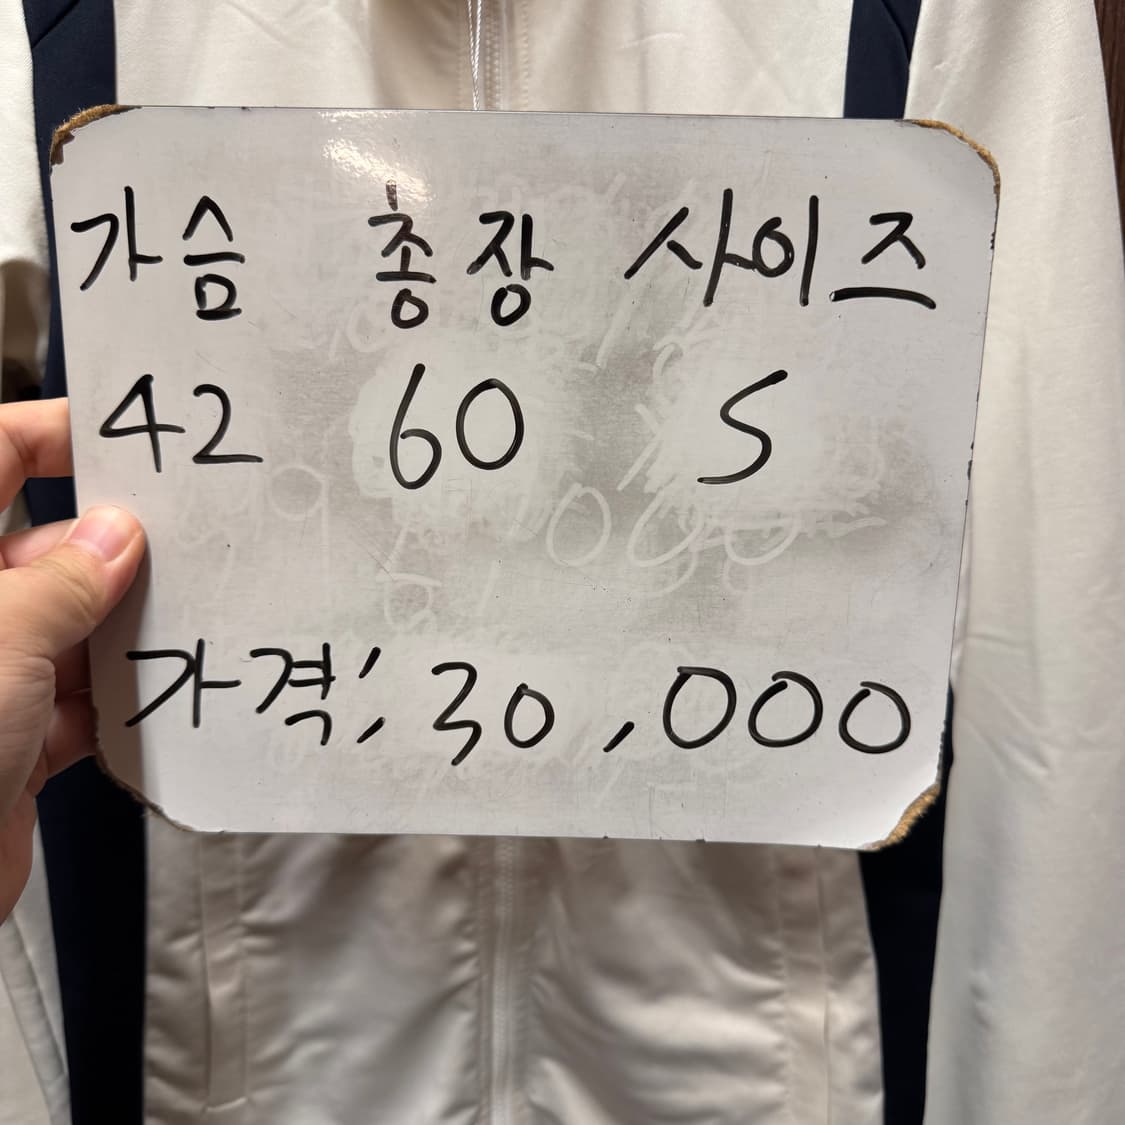 가슴 총장 사이즈
42 60 S
가격; 30,000